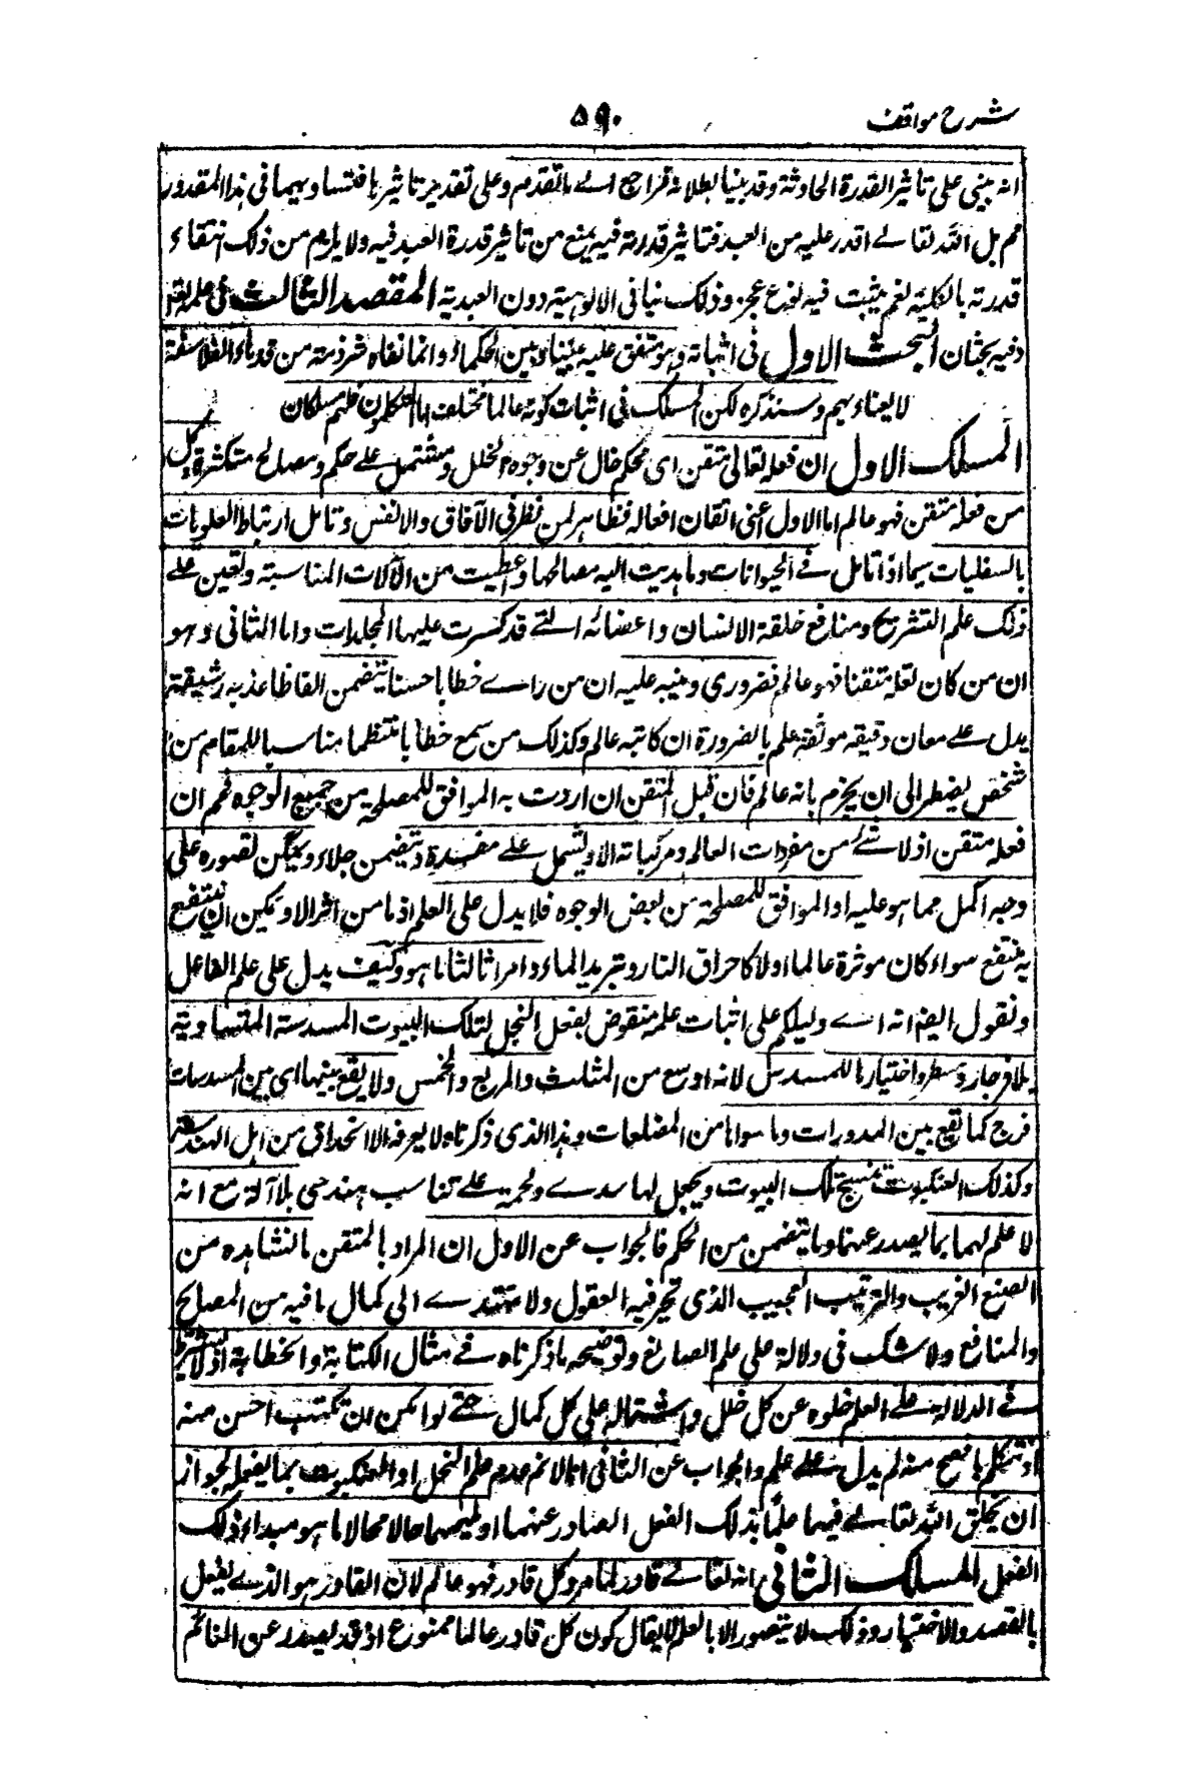 شرح مواقف
۵۹۰
انه مبنى على تاثير القدرة الحادثة وقد بينا بطلانه فراجع الے ما تقدم وعلى تقدير تاثيرها فتساويهما فى هذا المقدور
مم بل الله تعالے اقدر عليه من العبد فتاثير قدرته فيه يمنع من تاثير قدرة العبد فيه ولا يلزم من ذلك انتفاء
قدرته بالكلية نعم يثبت فيه نوع عجز وذلك ينافى الالوهية دون العبدية المقصد الثالث فى علمه تعالى
وفيه بحثان البحث الاول فى اثباته وهو متفق عليه بيننا وبين الحكماء وانما نفاه شرذمة من قدماء الفلاسفة
لا يعباء بهم وسنذكره لكن المسلك فى اثبات كونه عالما مختلف اما المتكلمون فلهم مسلكان
المسلك الاول ان فعله تعالى متقن اى محكم خال عن وجوه الخلل ومشتمل علے حكم ومصالح متكثرة وكل
من فعله متقن فهو عالم اما الاول اعنى اتقان افعاله فظاهر لمن نظر فى الآفاق والانفس وتامل ارتباط العلويات
بالسفليات سيما اذا تامل فے الحيوانات وما هديت اليه مصالحها واعطيت من الآلات المناسبة وتعين علے
ذلك علم التشريح ومنافع خلقة الانسان واعضائه التے قد كسرت عليها المجلدات واما الثانى وهو
ان من كان فعله متقنا فهو عالم فضرورى وينبه عليه ان من راے خطا حسنا يتضمن الفاظا عذبه رشيقة
يدل علے معان دقيقه موثقة علم بالضرورة ان كاتبه عالم وكذلك من سمع خطابا منتظما مناسبا للمقام من
شخص يضطر الى ان يجزم بانه عالم فان قيل المتقن ان اردت به الموافق للمصلحة من جميع الوجوه فمم ان
فعله متقن اذ لا شے من مفردات العالم ومركباته الا ويشتمل علے مفسدة ويتضمن خلاء ويمكن تصوره على
وجه اكمل مما هو عليه او الموافق للمصلحة من بعض الوجوه فلا يدل على العلم اذ ما من اثر الا ويمكن ان ينتفع
به منتفع سواء كان موثرة عالما اولا كاحراق النار وتبريد الماء او امرا ثالثا ما هو وكيف يدل على علم الفاعل
ونقول ايضا انه اے دليلكم على اثبات علمه منقوض بفعل النحل لتلك البيوت المسدسة المتساوية
بلا فرجار ومسطر واختيارها للمسدس لانه اوسع من المثلث والمربع والمخمس ولا يقع بينها اى بين المسدسات
فرج كما تقع بين المدورات وما سواها من المضلعات وهذا الذى ذكرناه لا يعرفه الا الحذاق من اهل الهندسة
وكذلك العنكبوت تنسج تلك البيوت ويجعل لها سدے ولحمة علے تناسب هندسى بلا آلة مع انه
لا علم لهما بما يصدر عنهما وما يتضمن من الحكم فالجواب عن الاول ان المراد بالمتقن ما نشاهده من
الصنع الغريب والترتيب العجيب الذى تتحير فيه العقول ولا تهتدے الى كمال ما فيه من المصالح
والمنافع ولا شك فى دلالة على علم الصانع وتوضيحه ما ذكرناه فے مثال الكتابة والخطابة اذ لا يشترط
فے الدلالة علے العلم خلوه عن كل خلل واشتماله على كل كمال حتے لو امكن ان تكتب احسن منه
او تتكلم بافصح منه لم يدل علے علم والجواب عن الثانى انا لا نم عدم علم النحل او العنكبوت بما يفعله لجواز
ان يخلق الله تعالے فيهما علما بذلك الفعل الصادر عنهما او يلهمهما حالا فحالا ما هو مبداء ذلك
الفعل المسلك الثانى انه تعالے قادر لما مر وكل قادر فهو عالم لان القادر هو الذے يفعل
بالقصد والاختيار وذلك لا يتصور الا بالعلم لا يقال كون كل قادر عالما ممنوع اذ قد يصدر عن النائم